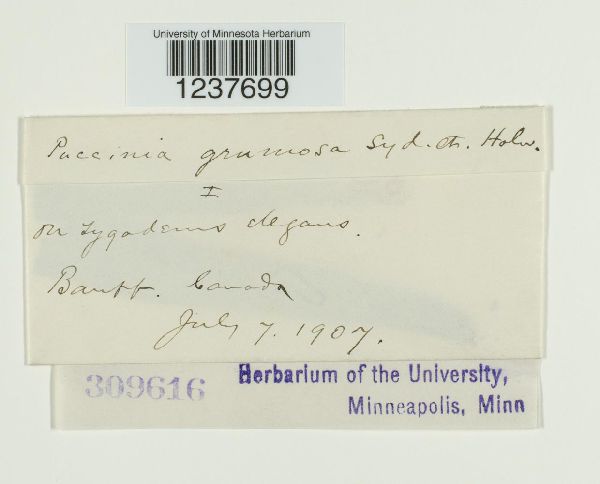 University of Minnesota Herbarium
1237699
Puccinia grumosa Syd. et. Holw.
I
on Zygadenus elegans.
Banff. Canada
July 7. 1907.
309616
Herbarium of the University,
Minneapolis, Minn